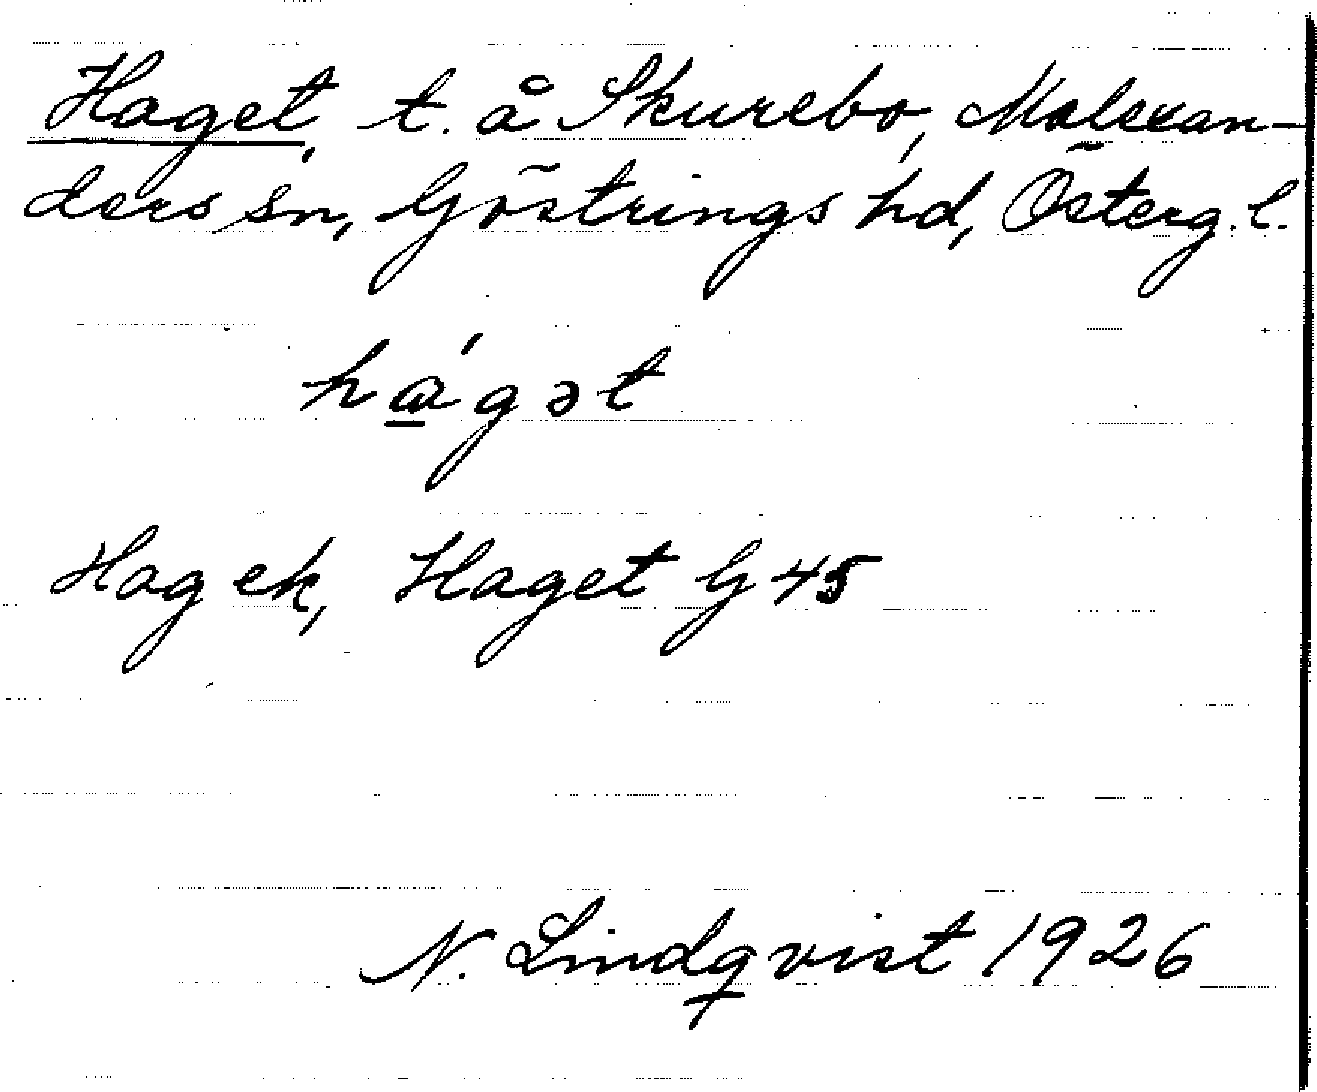 Haget, t. å Skurebo, Malexan-
ders sn, Göstrings hd, Österg. l.
ha̲´gət
Hag ek, Haget G 45
N. Lindqvist 1926